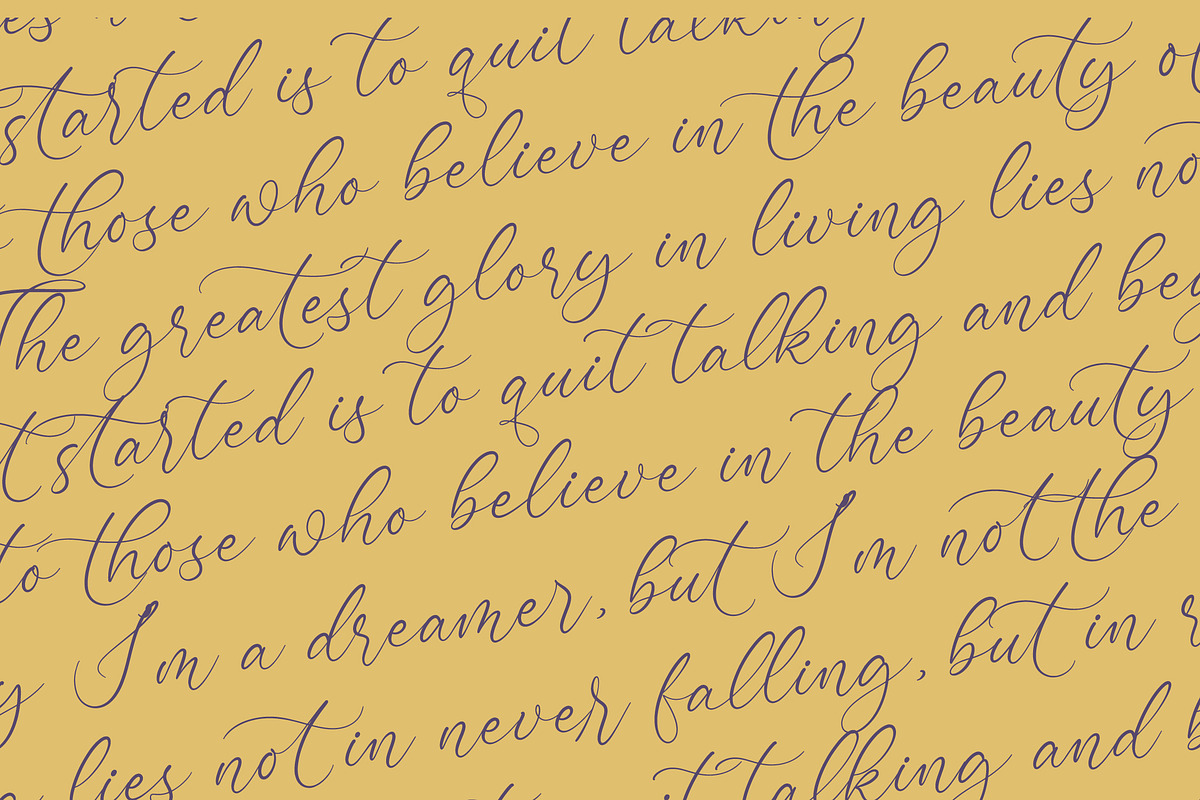 started is to quit talking
those who believe in the beauty of
The greatest glory in living lies no
t started is to quit talking and beg
to those who believe in the beauty
I m a dreamer, but I m not the
y lies not in never falling, but in r
talking and b